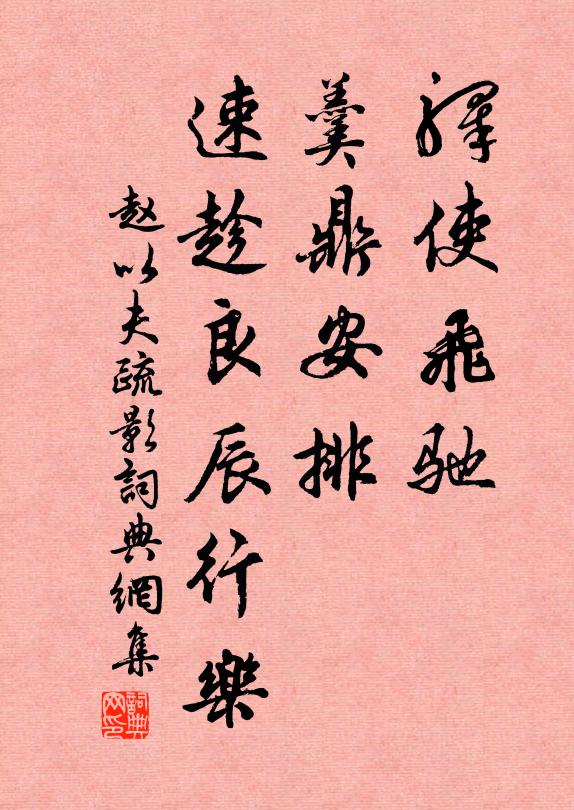 驛使飛馳
羹鼎安排
速趁良辰行樂
赵以夫疏影詞典網集
詞典网印